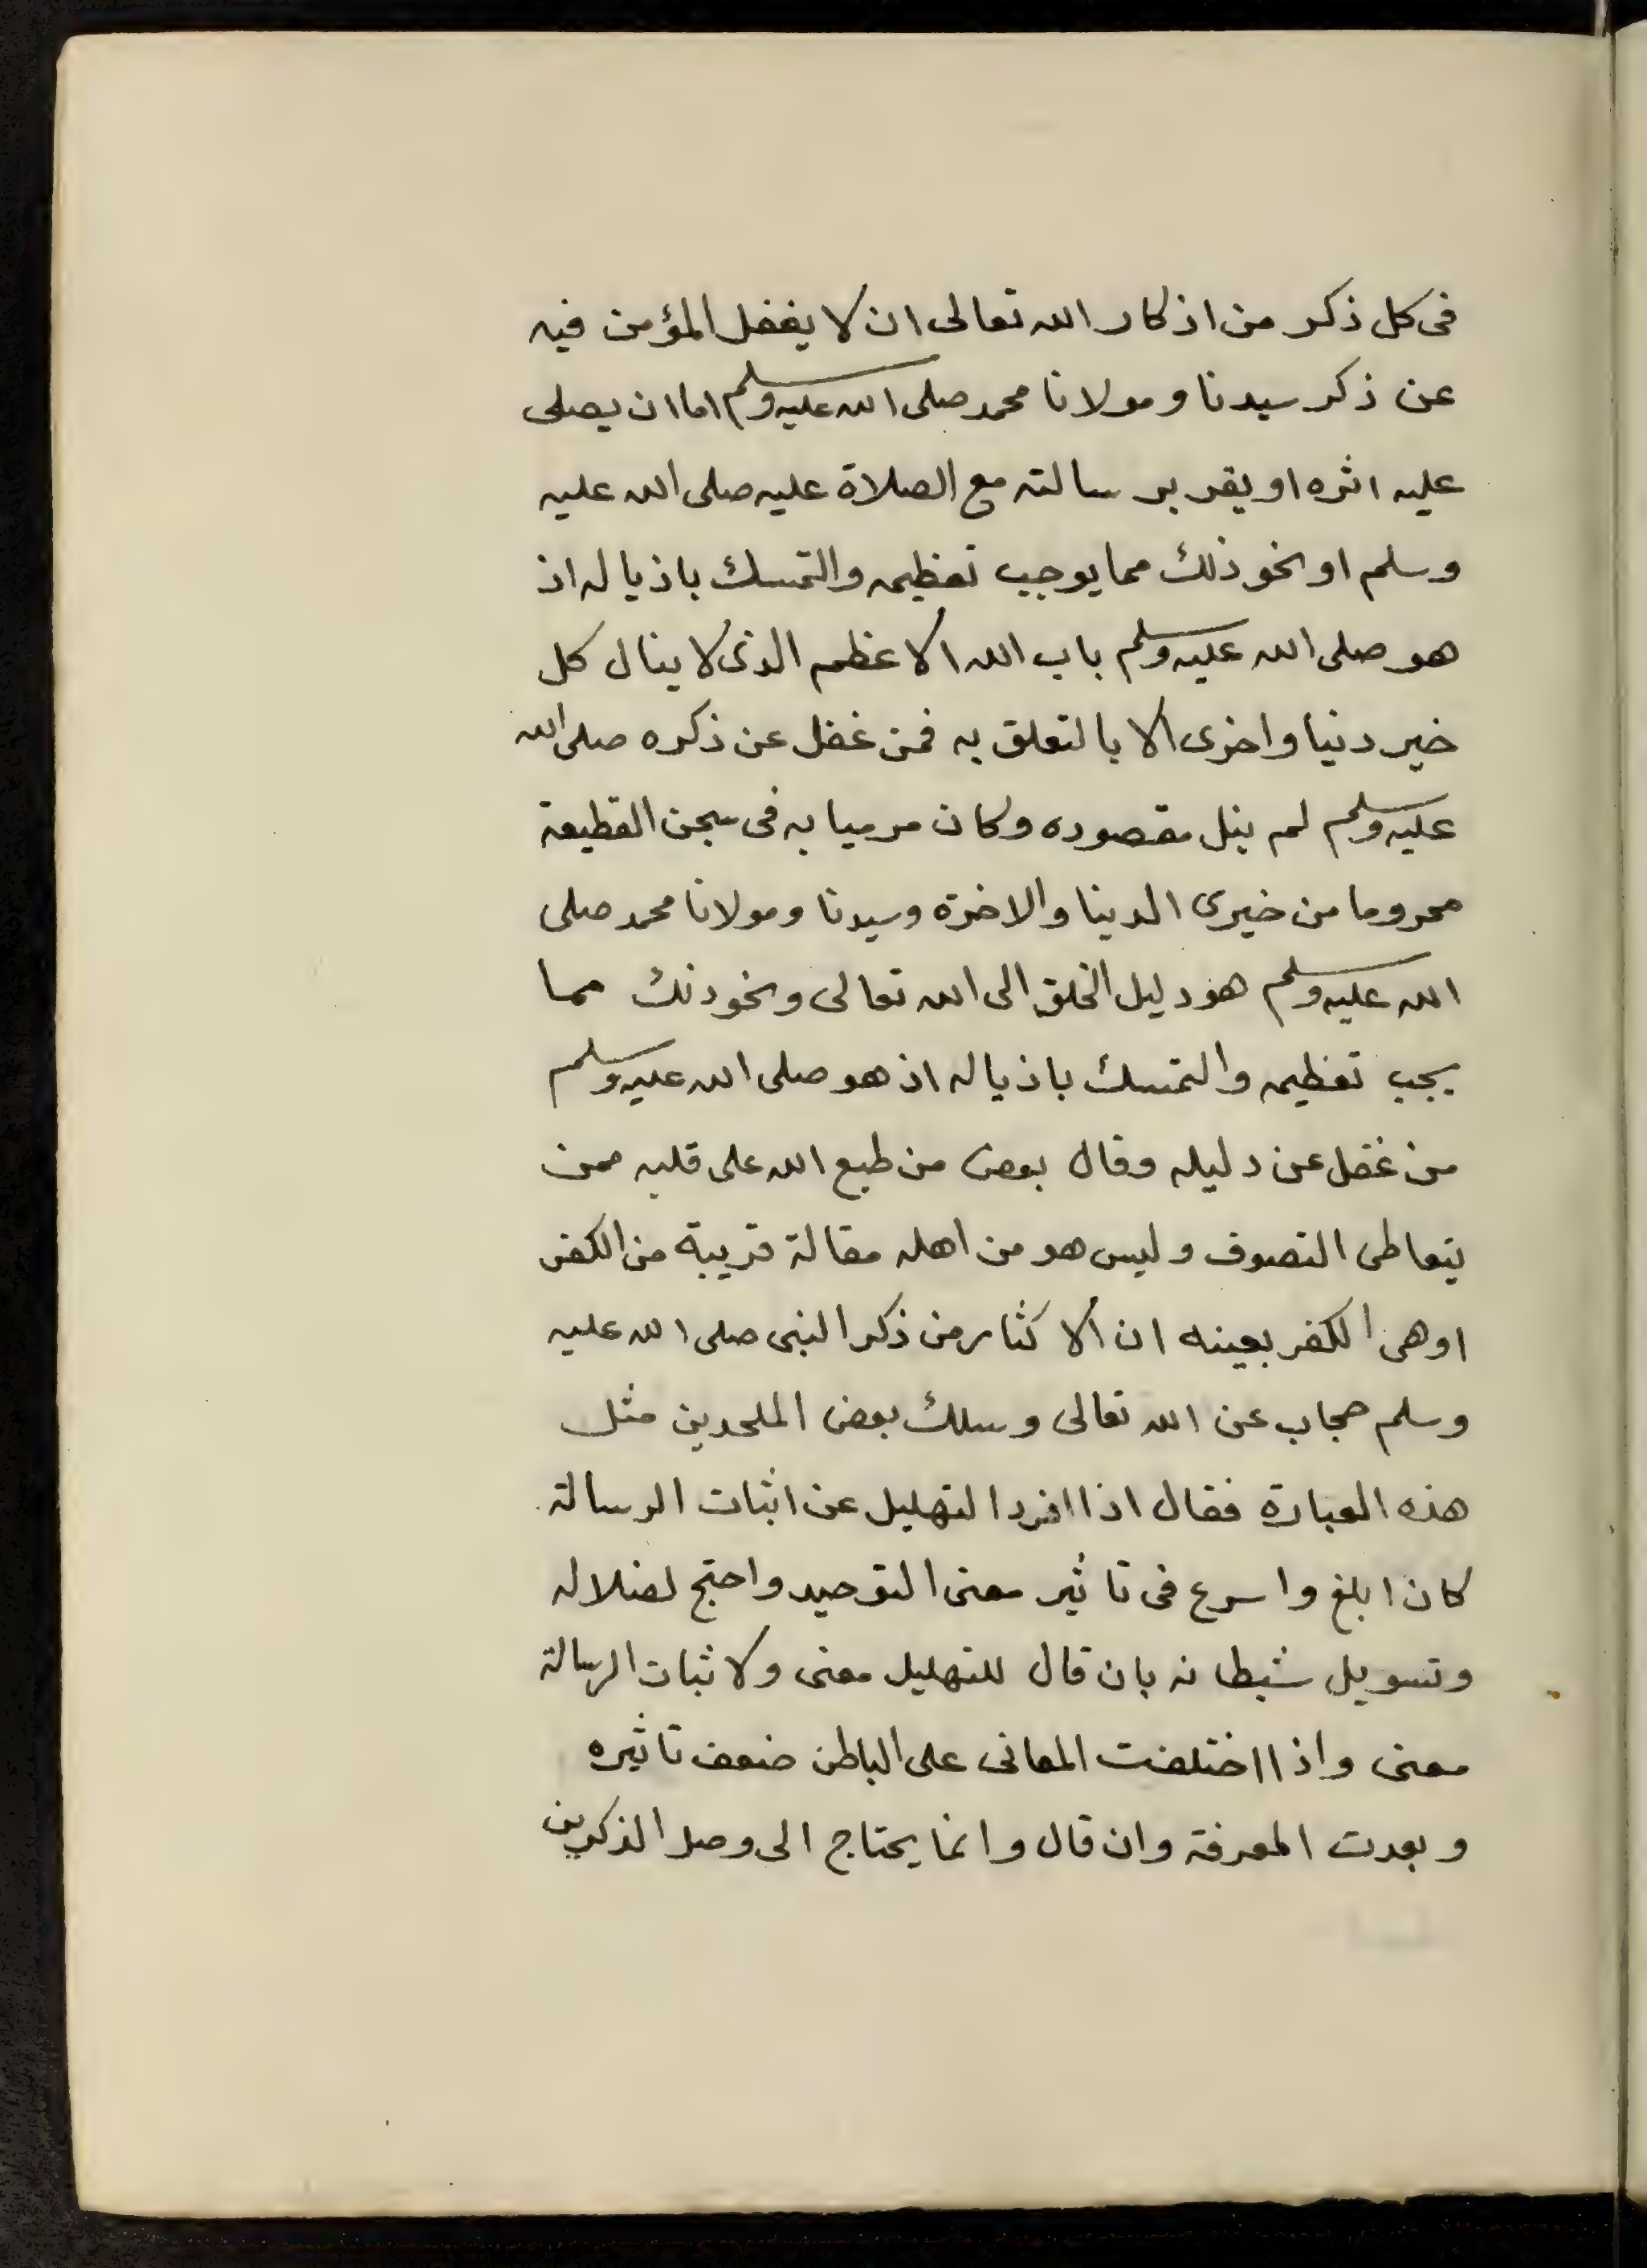 فى كل ذكر من اذكار الله تعالى ان لا يغفل المؤمن فيه
عن ذكر سيدنا ومولانا محمد صلى الله عليه وسلم اما ان يصلى
عليه اثره او يقر برسالته مع الصلاة عليه صلى الله عليه
وسلم او نحو ذلك مما يوجب تعظيمه والتمسك باذياله اذ
هو صلى الله عليه وسلم باب الله الاعظم الذى لا ينال كل
خير دنيا واخرى الا بالتعلق به فمن غفل عن ذكره صلى الله
عليه وسلم لم ينل مقصوده وكان مرميا به فى سجن القطيعة
محروما من خيرى الدينا والاخرة وسيدنا ومولانا محمد صلى
الله عليه وسلم هو دليل الخلق الى الله تعالى ونحو ذلك مما
يجب تعظيمه والتمسك باذياله اذ هو صلى الله عليه وسلم
من غفل عن دليله وقال بعض من طبع الله على قلبه ممن
يتعاطى التصوف وليس هو من اهله مقالة قريبة من الكفر
اوهى الكفر بعينه ان الاكثار من ذكر النبى صلى الله عليه
وسلم حجاب عن الله تعالى وسلك بعض الملحدين مثل
هذه العبارة فقال اذا افرد التهليل عن اثبات الرسالة
كان ابلغ واسرع فى تاثير معنى التوحيد واحتج لضلاله
وتسويل شيطانه بان قال للتهليل معنى ولاثبات الرسالة
معنى واذا اختلفت المعانى على الباطن ضعف تاثيره
وبعدت المعرفة وان قال وانما يحتاج الى وصل الذكرين